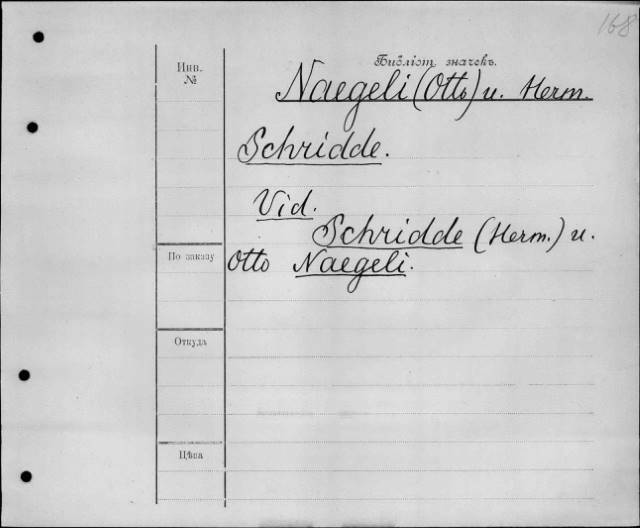 168
Инв.
№
Библіот. значекъ.
Naegeli (Otto) u. Herm.
Schridde.
Vid.
Schridde (Herm.) u.
По заказу
Otto Naegeli.
Откуда
Цѣна